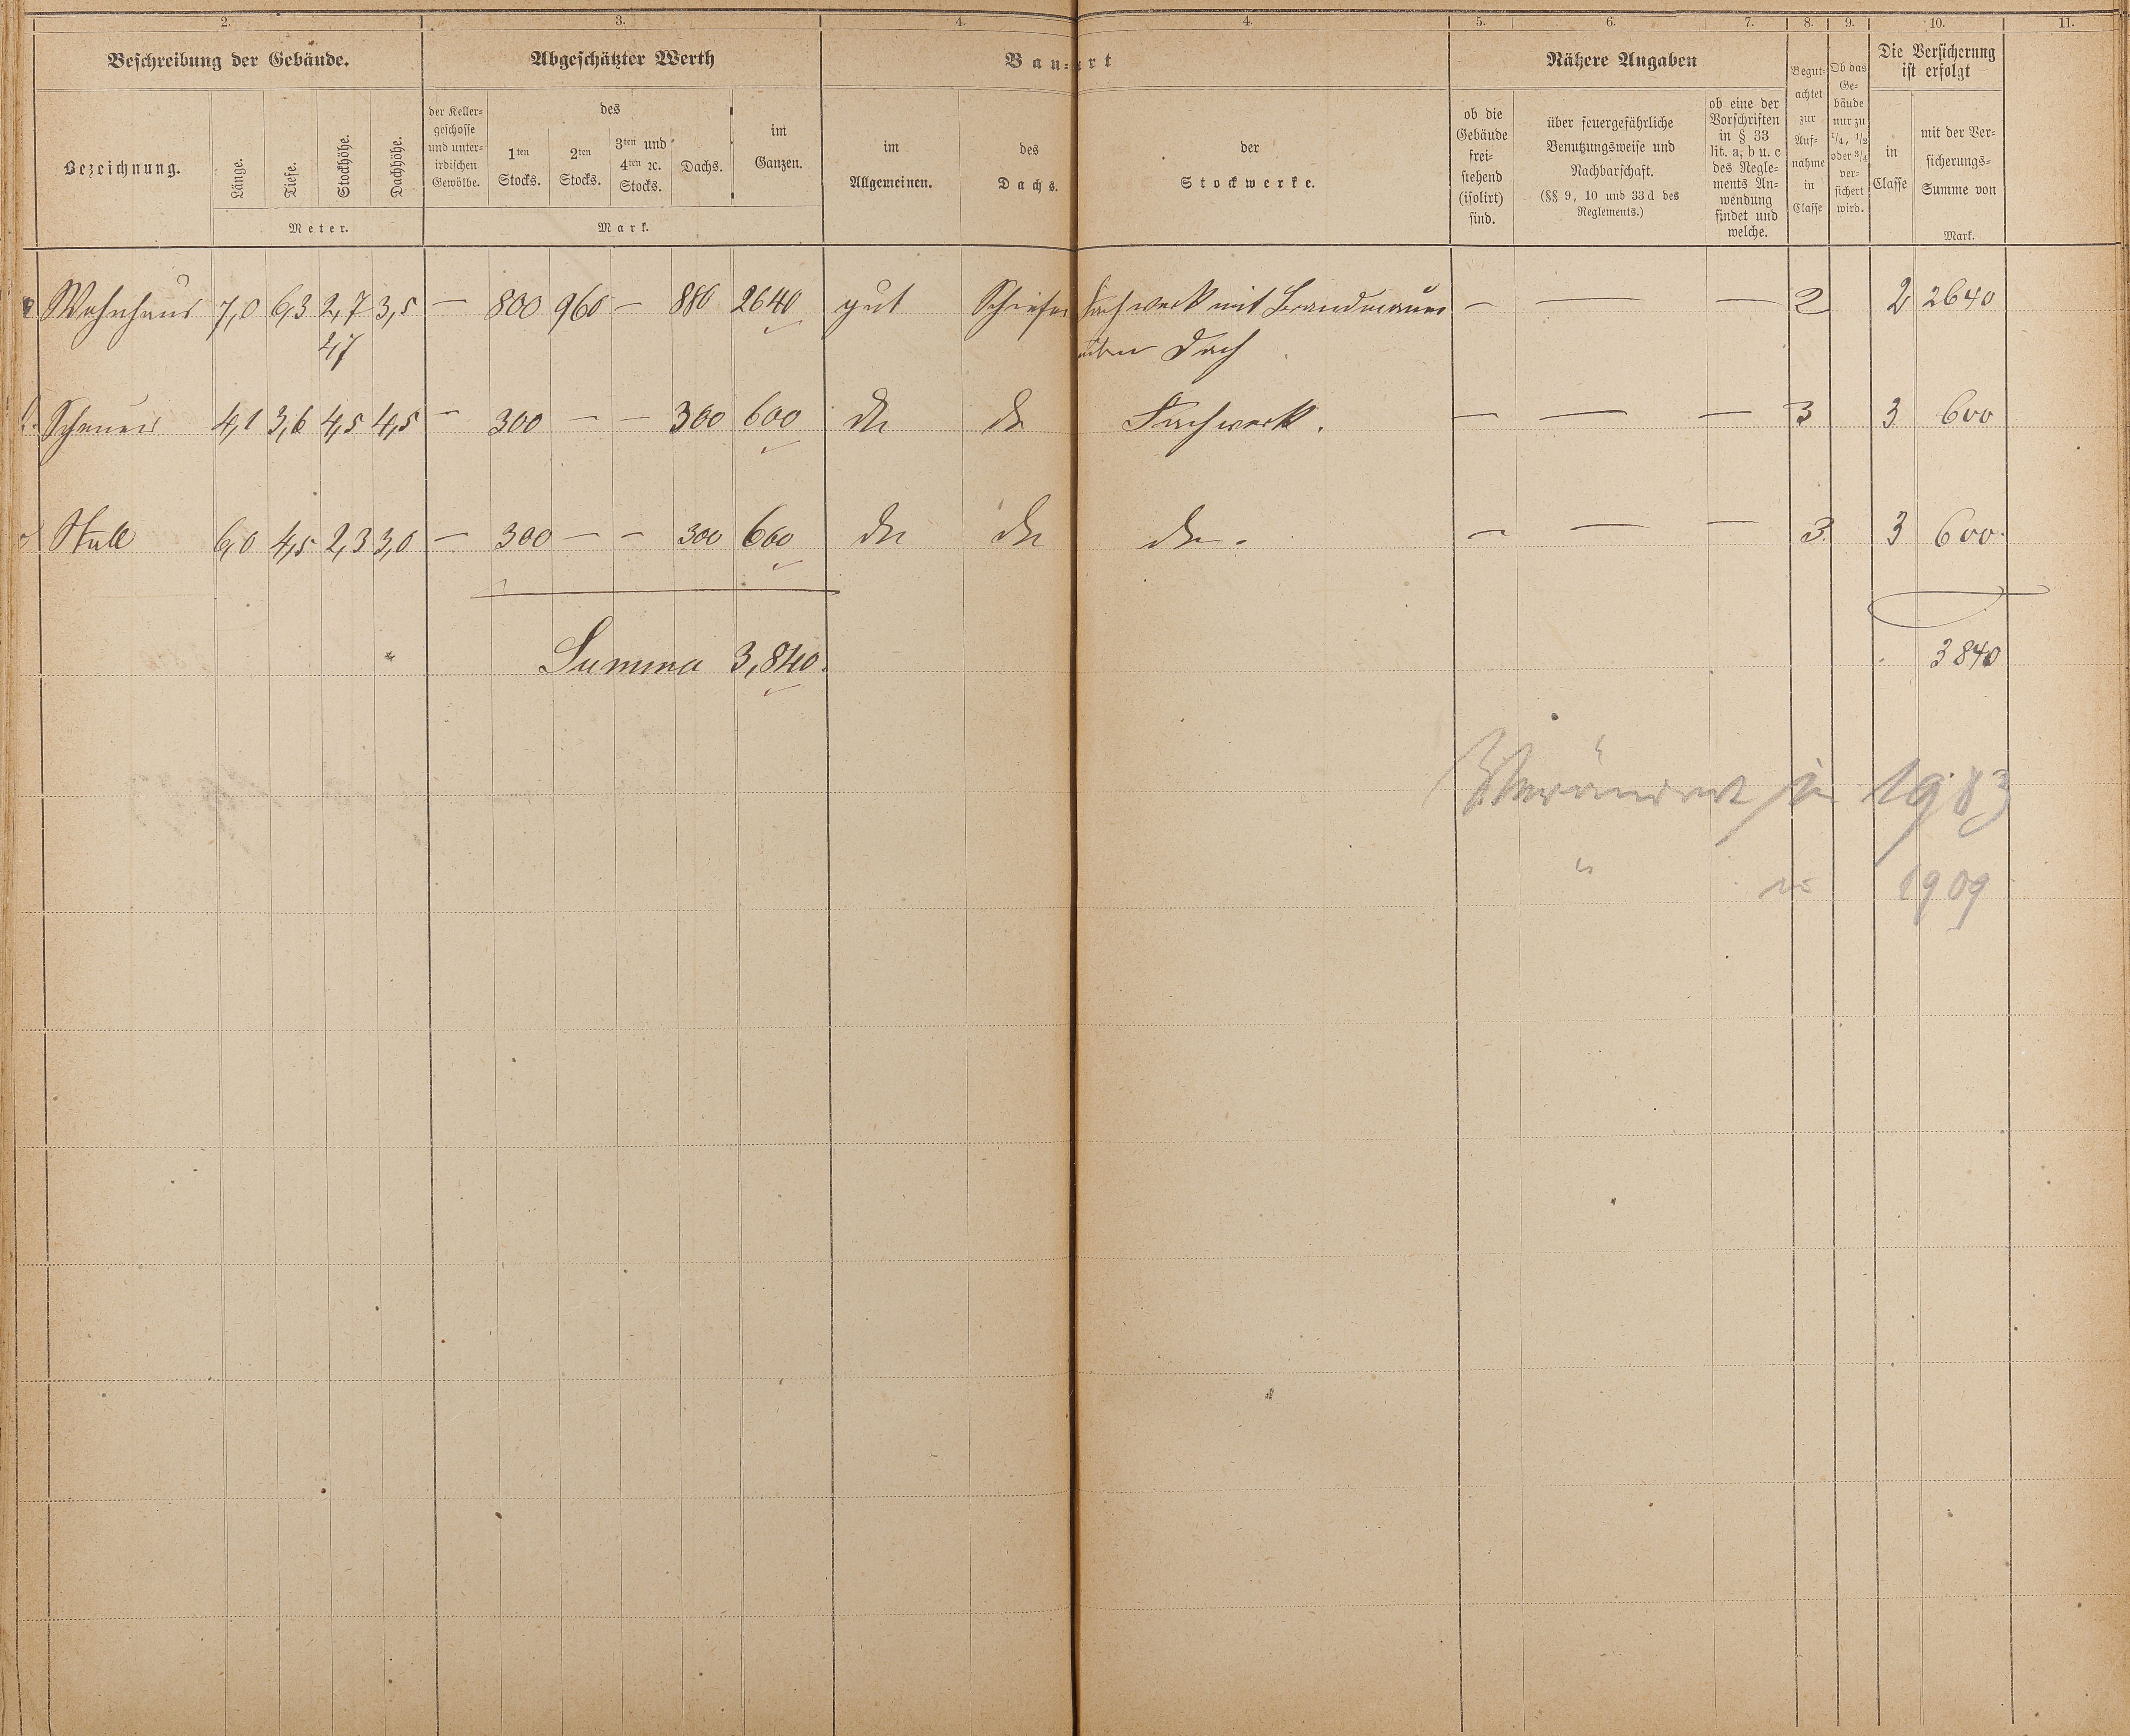 2. 3. 4. 4. 5. 6. 7. 8. 9. 10. 11.
Beschreibung der Gebäude. Abgeschätzter Werth Bau-art Nähere Angaben Die Versicherung ist erfolgt
Bezeichnung. Länge. Tiefe. Stockhöhe. Dachhöhe.
Meter.
der Keller-
geschosse
und unter-
irdischen
Gewölbe.
des
1ten Stocks. 2ten Stocks. 3ten und 4ten ꝛc. Stocks. Dachs.
im Ganzen.
Mark.
im Allgemeinen.
des Dachs.
der Stockwerke.
ob die
Gebäude
frei-
stehend
(isolirt)
sind.
über feuergefährliche
Benutzungsweise und
Nachbarschaft.
(§§ 9, 10 und 33 d des
Reglements.)
ob eine der
Vorschriften
in § 33
lit. a, b u. c
des Regle-
ments An-
wendung
findet und
welche.
Begut-
achtet
zur
Auf-
nahme
in
Classe
Ob das
Ge-
bäude
nur zu
1/4, 1/2
oder 3/4
ver-
sichert
wird.
in
Classe
mit der Ver-
sicherungs-
Summe von
Mark.
Wohnhaus 7,0 6,3 2,7 3,5 — 800 960 — 880 2640 gut Schiefer Fachwerk mit Brandmauer — — — 2 2 2640
4,7 über Dach
Scheuer 4,1 3,6 4,5 4,5 — 300 — — 300 600 do do Fachwerk. — — — 3 3 600
Stall 6,0 4,5 2,3 3,0 — 300 — — 300 600 do do do. — — — 3 3 600.
Summa 3,840. 3840
Verändert in
" in 1909